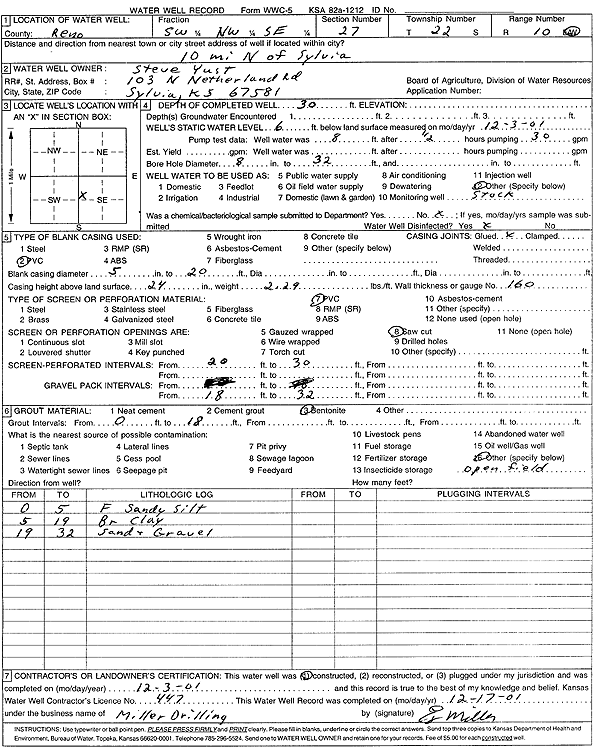 WATER WELL RECORD Form WWC-5 KSA 82a-1212 ID No.
1 LOCATION OF WATER WELL: Fraction Section Number Township Number Range Number
County: Reno SW ¼ NW ¼ SE ¼ 27 T 22 S R 10 E/W
Distance and direction from nearest town or city street address of well if located within city?
10 mi N of Sylvia
2 WATER WELL OWNER: Steve Yust
RR#, St. Address, Box # : 103 N Netherland Rd Board of Agriculture, Division of Water Resources
City, State, ZIP Code : Sylvia, KS 67581 Application Number:
3 LOCATE WELL'S LOCATION WITH AN "X" IN SECTION BOX:
N
NW NE
W E
SW X SE
S
1 Mile
4 DEPTH OF COMPLETED WELL 30 ft. ELEVATION:
Depth(s) Groundwater Encountered 1 ft. 2 ft. 3 ft.
WELL'S STATIC WATER LEVEL 6 ft. below land surface measured on mo/day/yr 12-3-01
Pump test data: Well water was 8 ft. after ½ hours pumping 30 gpm
Est. Yield gpm: Well water was ft. after hours pumping gpm
Bore Hole Diameter 8 in. to 32 ft., and in. to ft.
WELL WATER TO BE USED AS: 5 Public water supply 8 Air conditioning 11 Injection well
1 Domestic 3 Feedlot 6 Oil field water supply 9 Dewatering 12 Other (Specify below)
2 Irrigation 4 Industrial 7 Domestic (lawn & garden) 10 Monitoring well Stock
Was a chemical/bacteriological sample submitted to Department? Yes No X ; If yes, mo/day/yrs sample was submitted
Water Well Disinfected? Yes X No
5 TYPE OF BLANK CASING USED: 5 Wrought iron 8 Concrete tile CASING JOINTS: Glued X Clamped
1 Steel 3 RMP (SR) 6 Asbestos-Cement 9 Other (specify below) Welded
2 PVC 4 ABS 7 Fiberglass Threaded
Blank casing diameter 5 in. to 20 ft., Dia in. to ft., Dia in. to ft.
Casing height above land surface 24 in., weight 2.29 lbs./ft. Wall thickness or gauge No. 160
TYPE OF SCREEN OR PERFORATION MATERIAL: 7 PVC 10 Asbestos-cement
1 Steel 3 Stainless steel 5 Fiberglass 8 RMP (SR) 11 Other (specify)
2 Brass 4 Galvanized steel 6 Concrete tile 9 ABS 12 None used (open hole)
SCREEN OR PERFORATION OPENINGS ARE: 5 Gauzed wrapped 8 Saw cut 11 None (open hole)
1 Continuous slot 3 Mill slot 6 Wire wrapped 9 Drilled holes
2 Louvered shutter 4 Key punched 7 Torch cut 10 Other (specify) ft.
SCREEN-PERFORATED INTERVALS: From 20 ft. to 30 ft., From ft. to ft.
From ft. to ft., From ft. to ft.
GRAVEL PACK INTERVALS: From ft. to ft., From ft. to ft.
From 18 ft. to 32 ft., From ft. to ft.
6 GROUT MATERIAL: 1 Neat cement 2 Cement grout 3 Bentonite 4 Other
Grout Intervals: From 0 ft. to 18 ft., From ft. to ft., From ft. to ft.
What is the nearest source of possible contamination: 10 Livestock pens 14 Abandoned water well
1 Septic tank 4 Lateral lines 7 Pit privy 11 Fuel storage 15 Oil well/Gas well
2 Sewer lines 5 Cess pool 8 Sewage lagoon 12 Fertilizer storage 16 Other (specify below)
3 Watertight sewer lines 6 Seepage pit 9 Feedyard 13 Insecticide storage open field
Direction from well? How many feet?
FROM TO LITHOLOGIC LOG FROM TO PLUGGING INTERVALS
0 5 F Sandy Silt
5 19 Br Clay
19 32 Sand & Gravel
7 CONTRACTOR'S OR LANDOWNER'S CERTIFICATION: This water well was (1) constructed, (2) reconstructed, or (3) plugged under my jurisdiction and was
completed on (mo/day/year) 12-3-01 and this record is true to the best of my knowledge and belief. Kansas
Water Well Contractor's Licence No. 447 This Water Well Record was completed on (mo/day/yr) 12-17-01
under the business name of Miller Drilling by (signature) Miller
INSTRUCTIONS: Use typewriter or ball point pen. PLEASE PRESS FIRMLY and PRINT clearly. Please fill in blanks, underline or circle the correct answers. Send top three copies to Kansas Department of Health and
Environment, Bureau of Water, Topeka, Kansas 66620-0001. Telephone 785-296-5524. Send one to WATER WELL OWNER and retain one for your records. Fee of $5.00 for each constructed well.